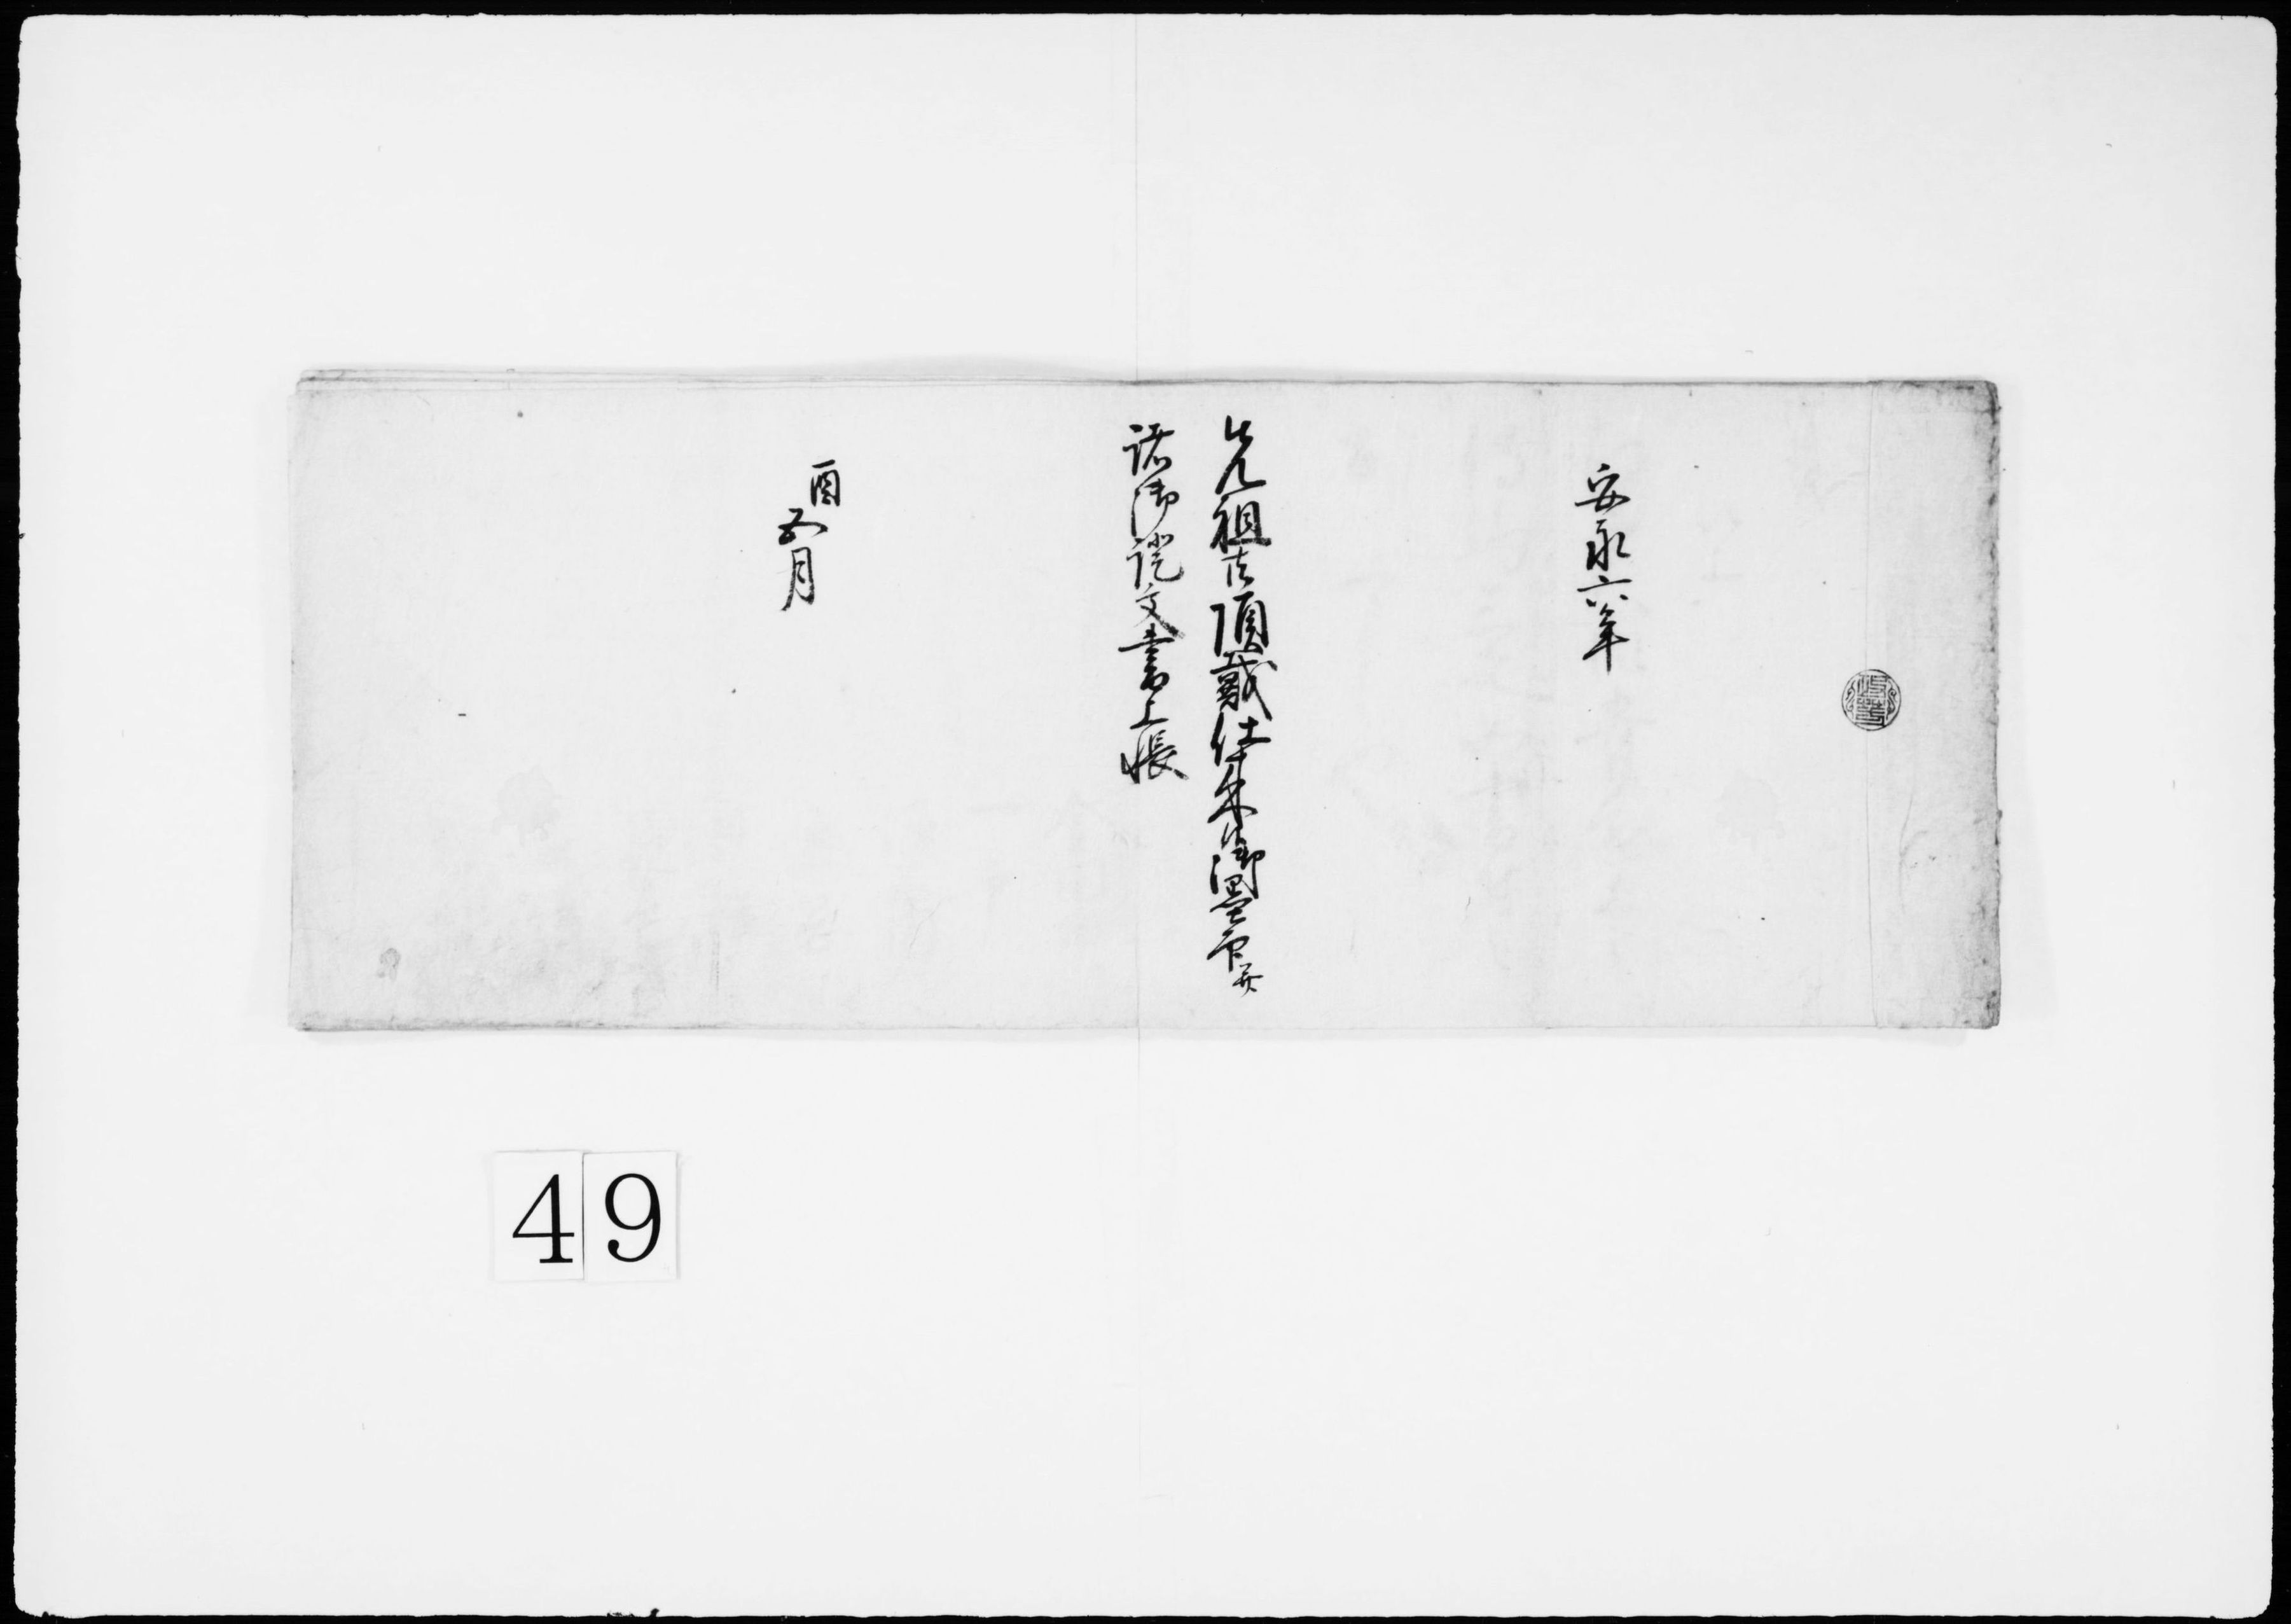 安永六年
先祖ゟ頂戴仕来候御墨印并
諸御証文書上帳
酉五月
49